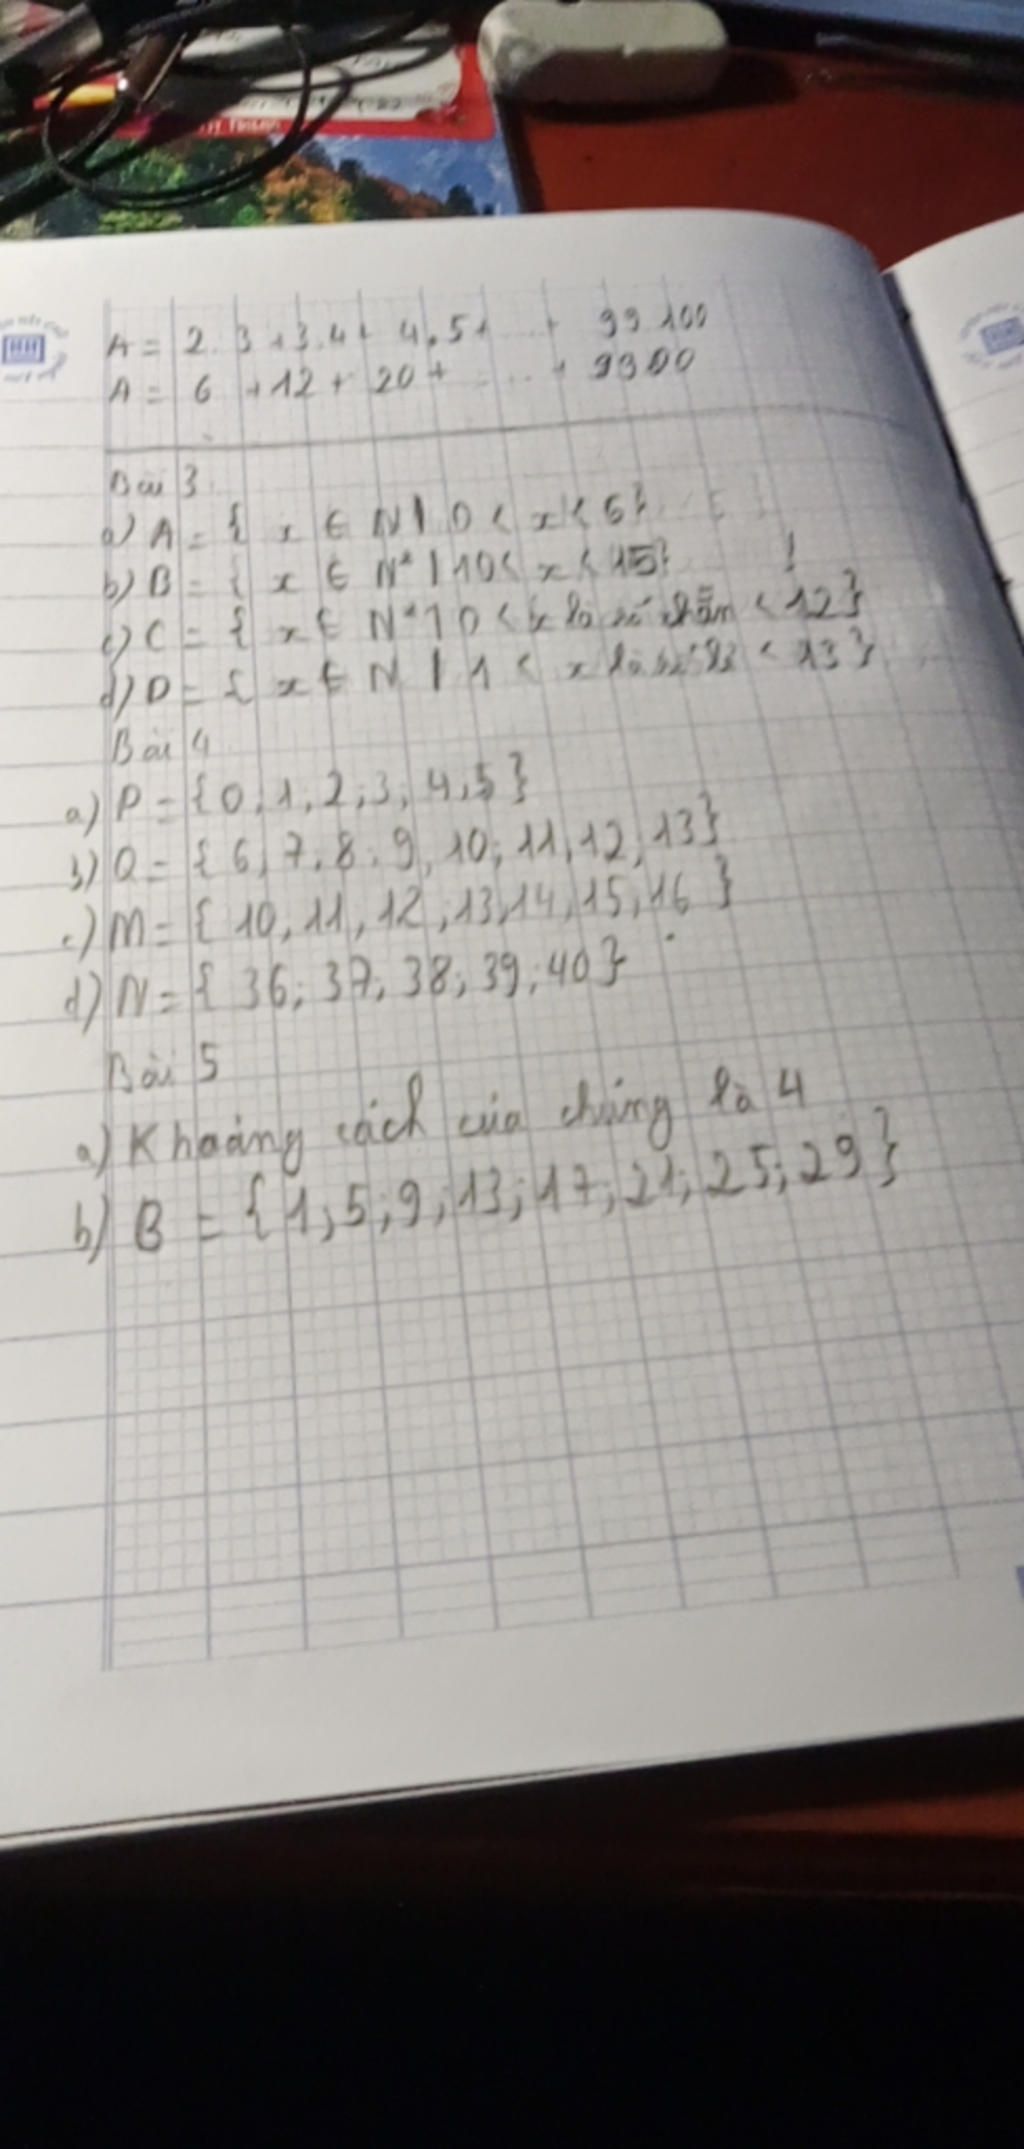 A = 2.3 + 3.4 + 4.5 + ... + 99.100
A = 6 + 12 + 20 + ... + 9900
Bài 3
a) A = { x ∈ N | 0 < x < 6}
b) B = { x ∈ N* | 10 < x < 15}
c) C = { x ∈ N* | 0 < x là số chẵn < 12}
d) D = { x ∈ N | 1 < x là số lẻ < 13}
Bài 4
a) P = {0; 1, 2; 3; 4; 5}
b) Q = { 6; 7; 8; 9, 10; 11, 12, 13}
c) M = { 10, 11, 12, 13, 14, 15, 16 }
d) N = { 36; 37; 38; 39; 40}
Bài 5
a) Khoảng cách của chúng là 4
b) B = {1; 5; 9; 13; 17; 21; 25; 29}